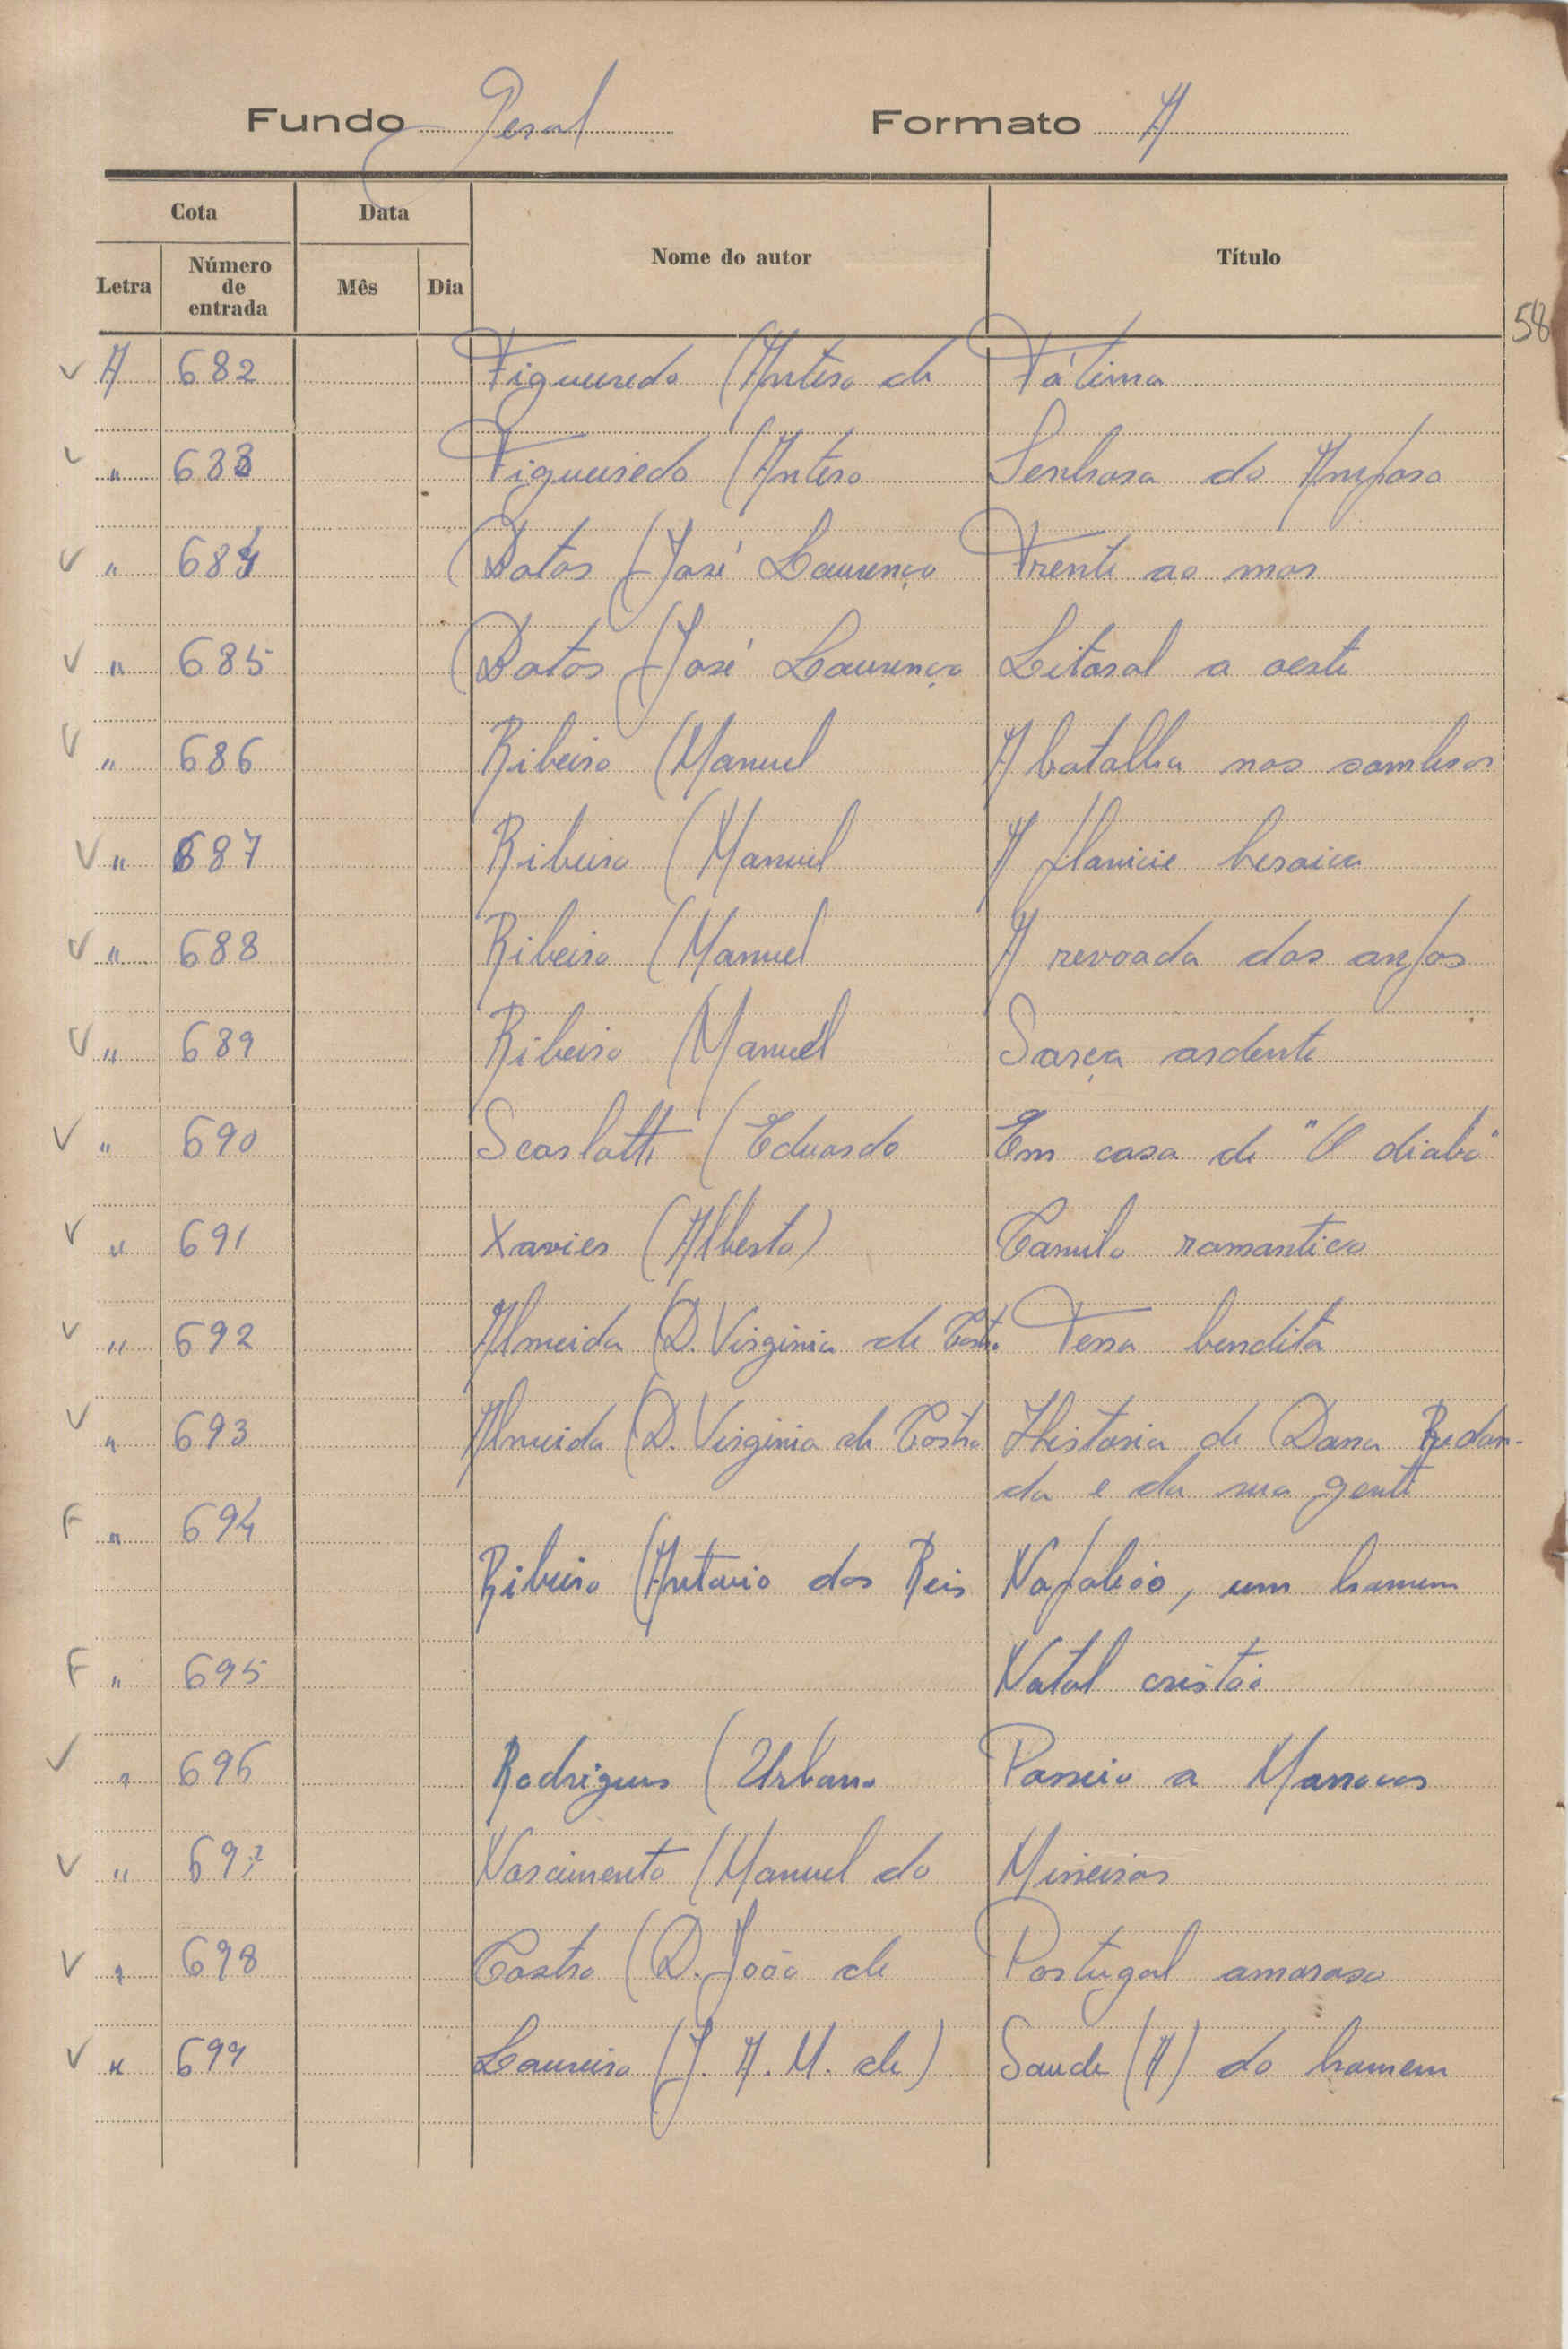 Fundo Geral Formato A
Cota Data
Nome do autor Título
Letra Número de entrada Mês Dia
58
V A 682 Figueiredo (Antero de Fátima
V " 683 Figueiredo (Antero Senhora do Amparo
V " 684 Botas (José Lourenço Frente ao mar
V " 685 Botas (José Lourenço Litoral a oeste
V " 686 Ribeiro (Manuel A batalha nas sombras
V " 687 Ribeiro (Manuel A planicie heroica
V " 688 Ribeiro (Manuel A revoada dos anjos
V " 689 Ribeiro (Manuel Sarça ardente
V " 690 Scarlatti (Eduardo Em casa de "O diabo"
V " 691 Xavier (Alberto) Camilo romantico
V " 692 Almeida (D. Virginia de Cast. Terra bendita
V " 693 Almeida (D. Virginia de Costro Historia de Dona Redon-
da e da sua gente
F " 694
Ribeiro (Antonio dos Reis Napoleão, um homem
F " 695 Natal cristão
V " 696 Rodrigues (Urbano Passeio a Marrocos
V " 697 Nascimento (Manuel do Mineiros
V " 698 Castro (D. João de Portugal amoroso
V " 699 Loureiro (J. A. M. de) Saude (A) do homem